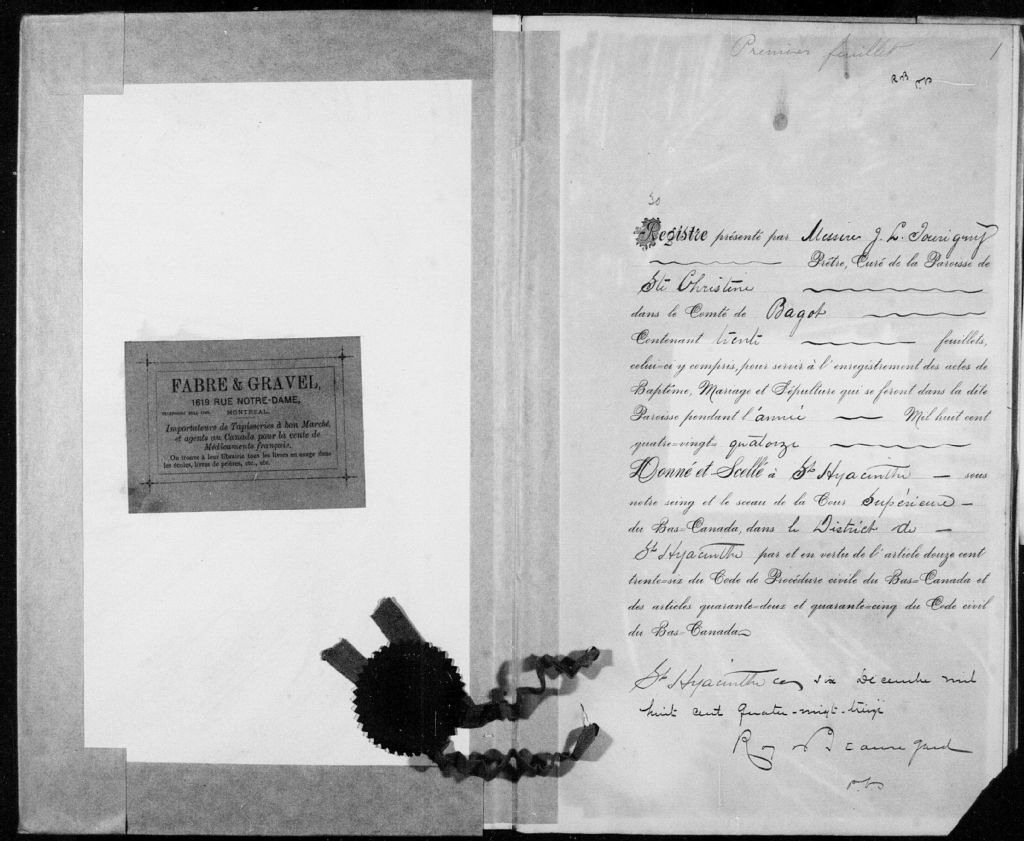 FABRE & GRAVEL,
1619 RUE NOTRE-DAME,
TELEPHONE BELL MONTREAL.
Importateurs de Tapisseries à bon Marché,
et agents au Canada pour la vente de
Médicaments français.
On trouve à leur librairie tous les livres en usage dans
les écoles, livres de prières, etc., etc.
Premier feuillet 1
30
Registre présenté par Messire J. L.
Prêtre, Curé de la Paroisse de
Ste Christine
dans le Comté de Bagot
Contenant trente feuillets,
celui-ci y compris, pour servir à l'enregistrement des actes de
Baptême, Mariage et Sépulture qui se feront dans la dite
Paroisse pendant l'année Mil huit cent
quatre-vingt= quatorze
Donné et Scellé à St Hyacinthe — sous
notre seing et le sceau de la Cour Supérieure —
du Bas=Canada, dans le District de —
St Hyacinthe par et en vertu de l'article douze cent
trente=six du Code de Procédure civile du Bas=Canada et
des articles quarante=deux et quarante=cinq du Code civil
du Bas=Canada
St Hyacinthe ce six Décembre mil
huit cent quatre-vingt-treize
Roy & Beauregard